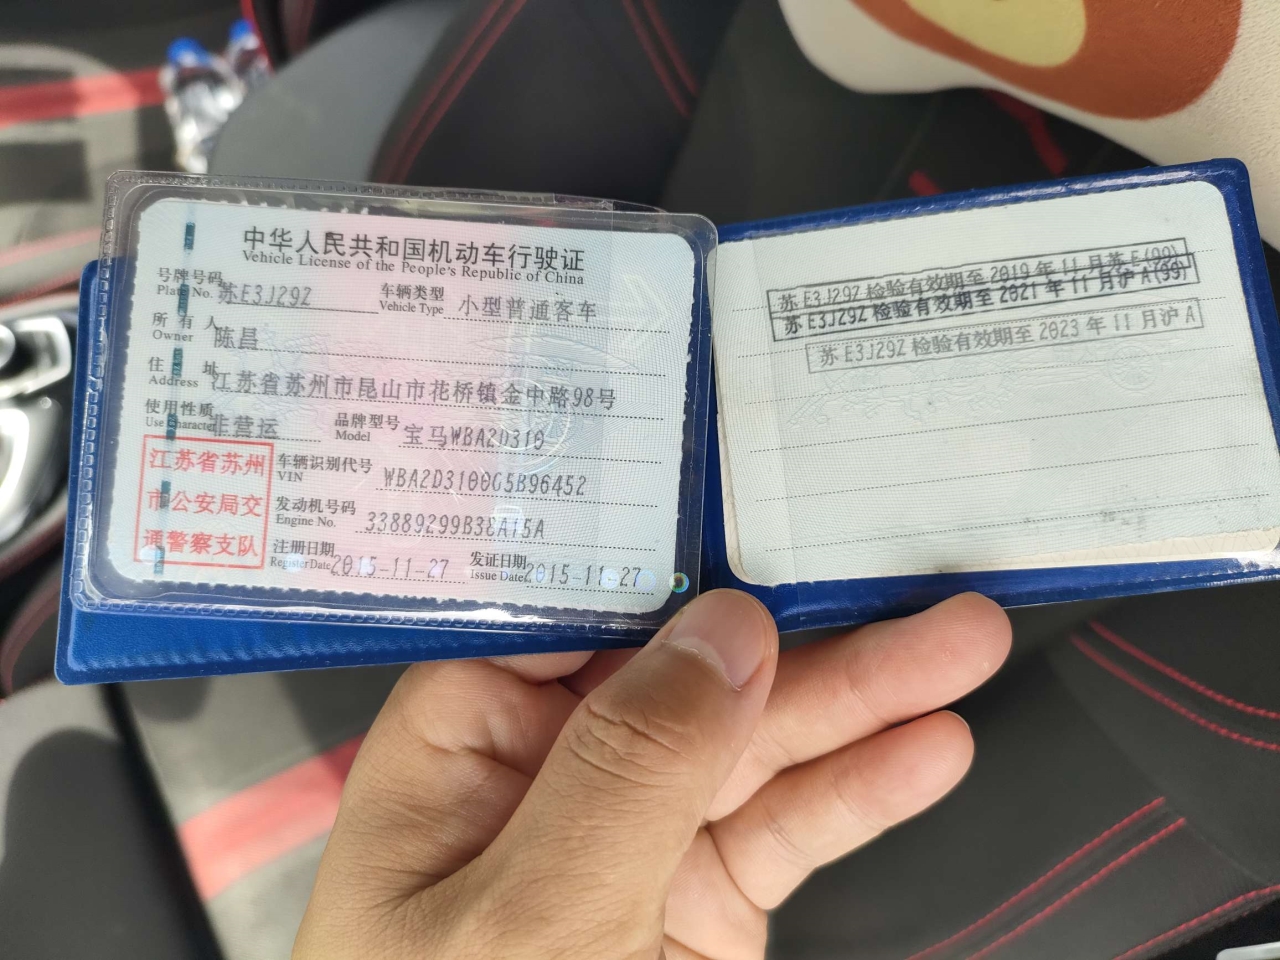 中华人民共和国机动车行驶证
Vehicle License of the People's Republic of China
号牌号码 Plate No. 苏E3J29Z 车辆类型 Vehicle Type 小型普通客车
所有人 Owner 陈昌
住址 Address 江苏省苏州市昆山市花桥镇金中路98号
使用性质 Use Character 非营运 品牌型号 Model 宝马WBA2D310
江苏省苏州
市公安局交
通警察支队
车辆识别代号 VIN WBA2D3100G5B96452
发动机号码 Engine No. 33889299B38A15A
注册日期 Register Date 2015-11-27 发证日期 Issue Date 2015-11-27
苏E3J29Z 检验有效期至 2019 年 11 月苏E(99)
苏E3J29Z 检验有效期至 2021 年 11 月沪A(99)
苏E3J29Z 检验有效期至 2023 年 11 月沪A